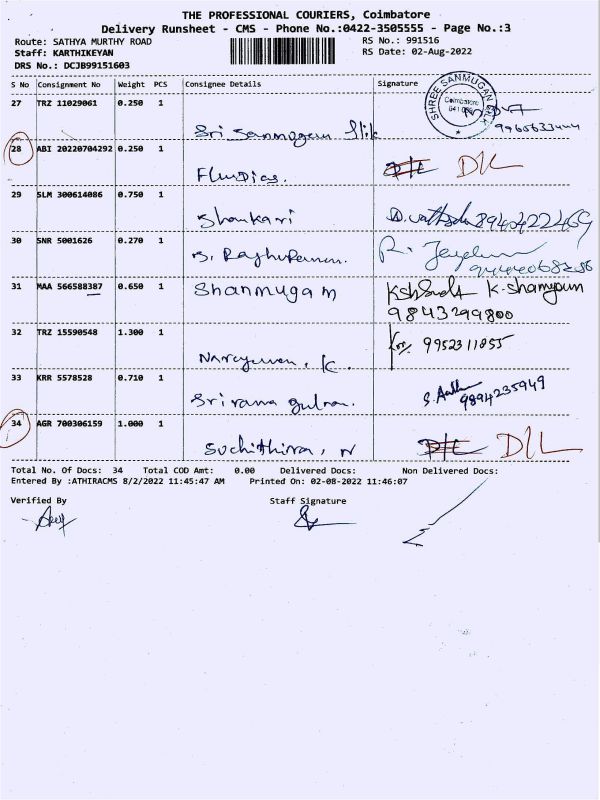 THE PROFESSIONAL COURIERS, Coimbatore
Delivery Runsheet - CMS - Phone No.:0422-3505555 - Page No.:3
Route: SATHYA MURTHY ROAD RS No.: 991516
Staff: KARTHIKEYAN RS Date: 02-Aug-2022
DRS No.: DCJB99151603
S No Consignment No Weight PCS Consignee Details Signature
27 TRZ 11029061 0.250 1
SHREE SANMUGAN Coimbatore
Sri
28 ABI 20220704292 0.250 1 DL
29 SLM 300614086 0.750 1
Shankari 8940422469
30 SNR 5001626 0.270 1
31 MAA 566588387 0.650 1 Shanmugam
9843299800
32 TRZ 15590548 1.300 1 9952311855
K.
33 KRR 5578528 0.710 1
9894235949
34 AGR 700306159 1.000 1
Suchithira, N DL
Total No. Of Docs: 34 Total COD Amt: 0.00 Delivered Docs: Non Delivered Docs:
Entered By :ATHIRACMS 8/2/2022 11:45:47 AM Printed On: 02-08-2022 11:46:07
Verified By Staff Signature